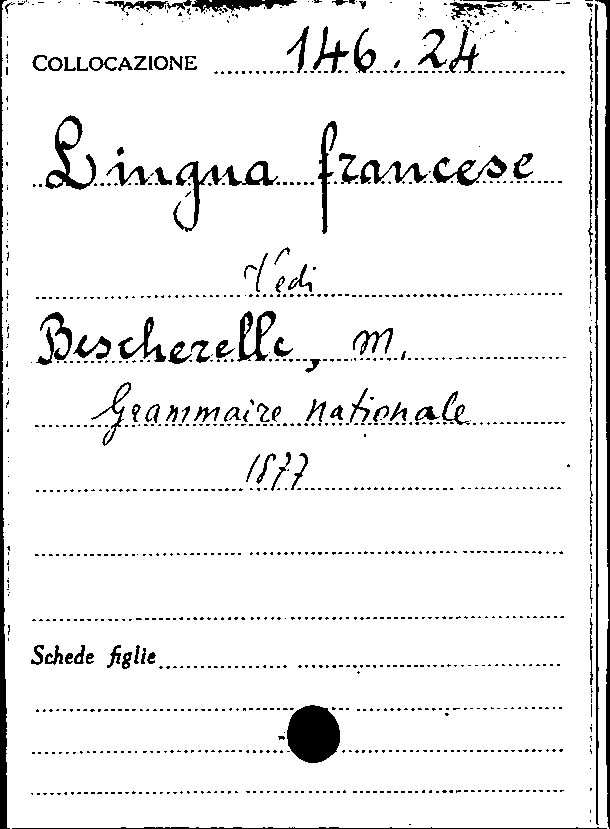 COLLOCAZIONE 146.24
Lingua francese
Vedi
Bescherelle, M.
Grammaire nationale
1877
Schede figlie